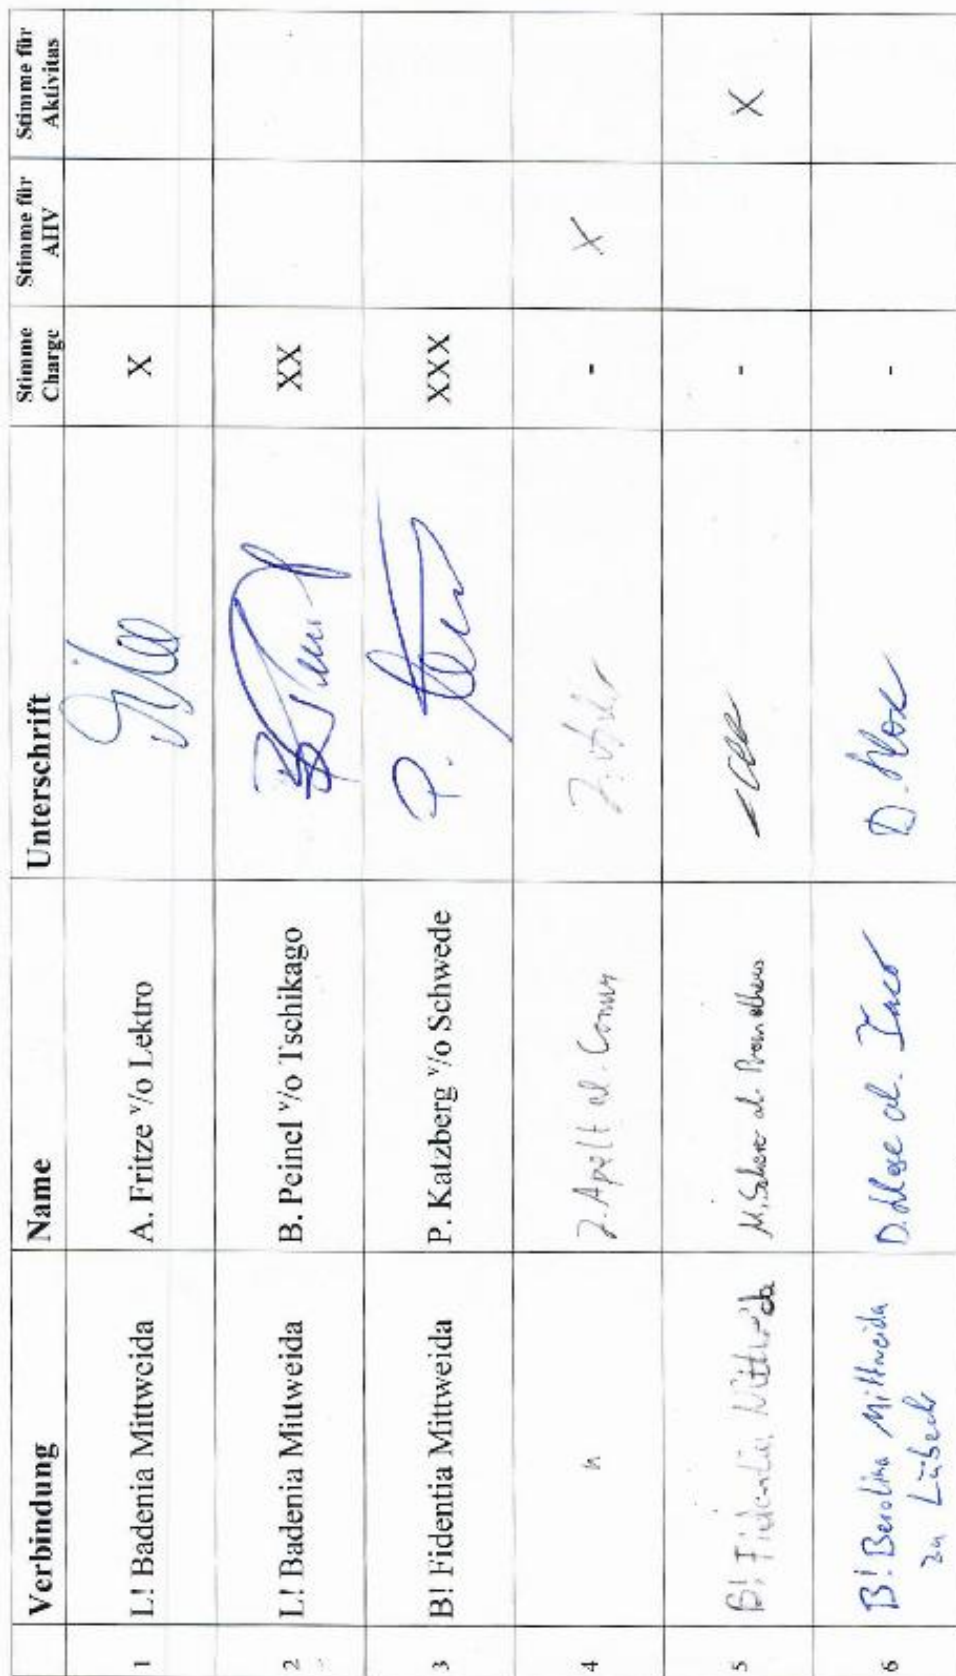 Verbindung Name Unterschrift Stimme Charge Stimme für AHV Stimme für Aktivitas
1 L! Badenia Mittweida A. Fritze v/o Lektro X
2 L! Badenia Mittweida B. Peinel v/o Tschikago XX
3 B! Fidentia Mittweida P. Katzberg v/o Schwede P. XXX
4 " J. Apelt al. - X
5 B! Fidentia Mittweida M. al. - X
6 B! Berolina Mittweida D. al. D. -
zu Lübeck